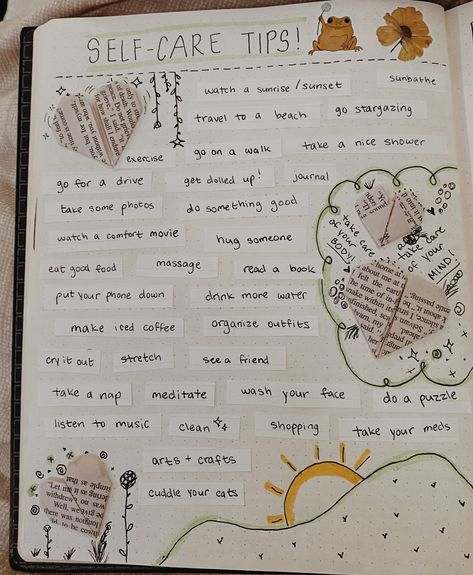 SELF-CARE TIPS!
watch a sunrise/sunset
sunbathe
travel to a beach
go stargazing
exercise
go on a walk
take a nice shower
go for a drive
get dolled up!
journal
take some photos
do something good
watch a comfort movie
hug someone
take care
of your
BODY!
take care
of your
MIND!
eat good food
massage
read a book
put your phone down
drink more water
make iced coffee
organize outfits
cry it out
stretch
see a friend
take a nap
meditate
wash your face
do a puzzle
listen to music
clean
shopping
take your meds
arts + crafts
cuddle your cats
"Let me it se
withdrew
Well, we
there was nothing